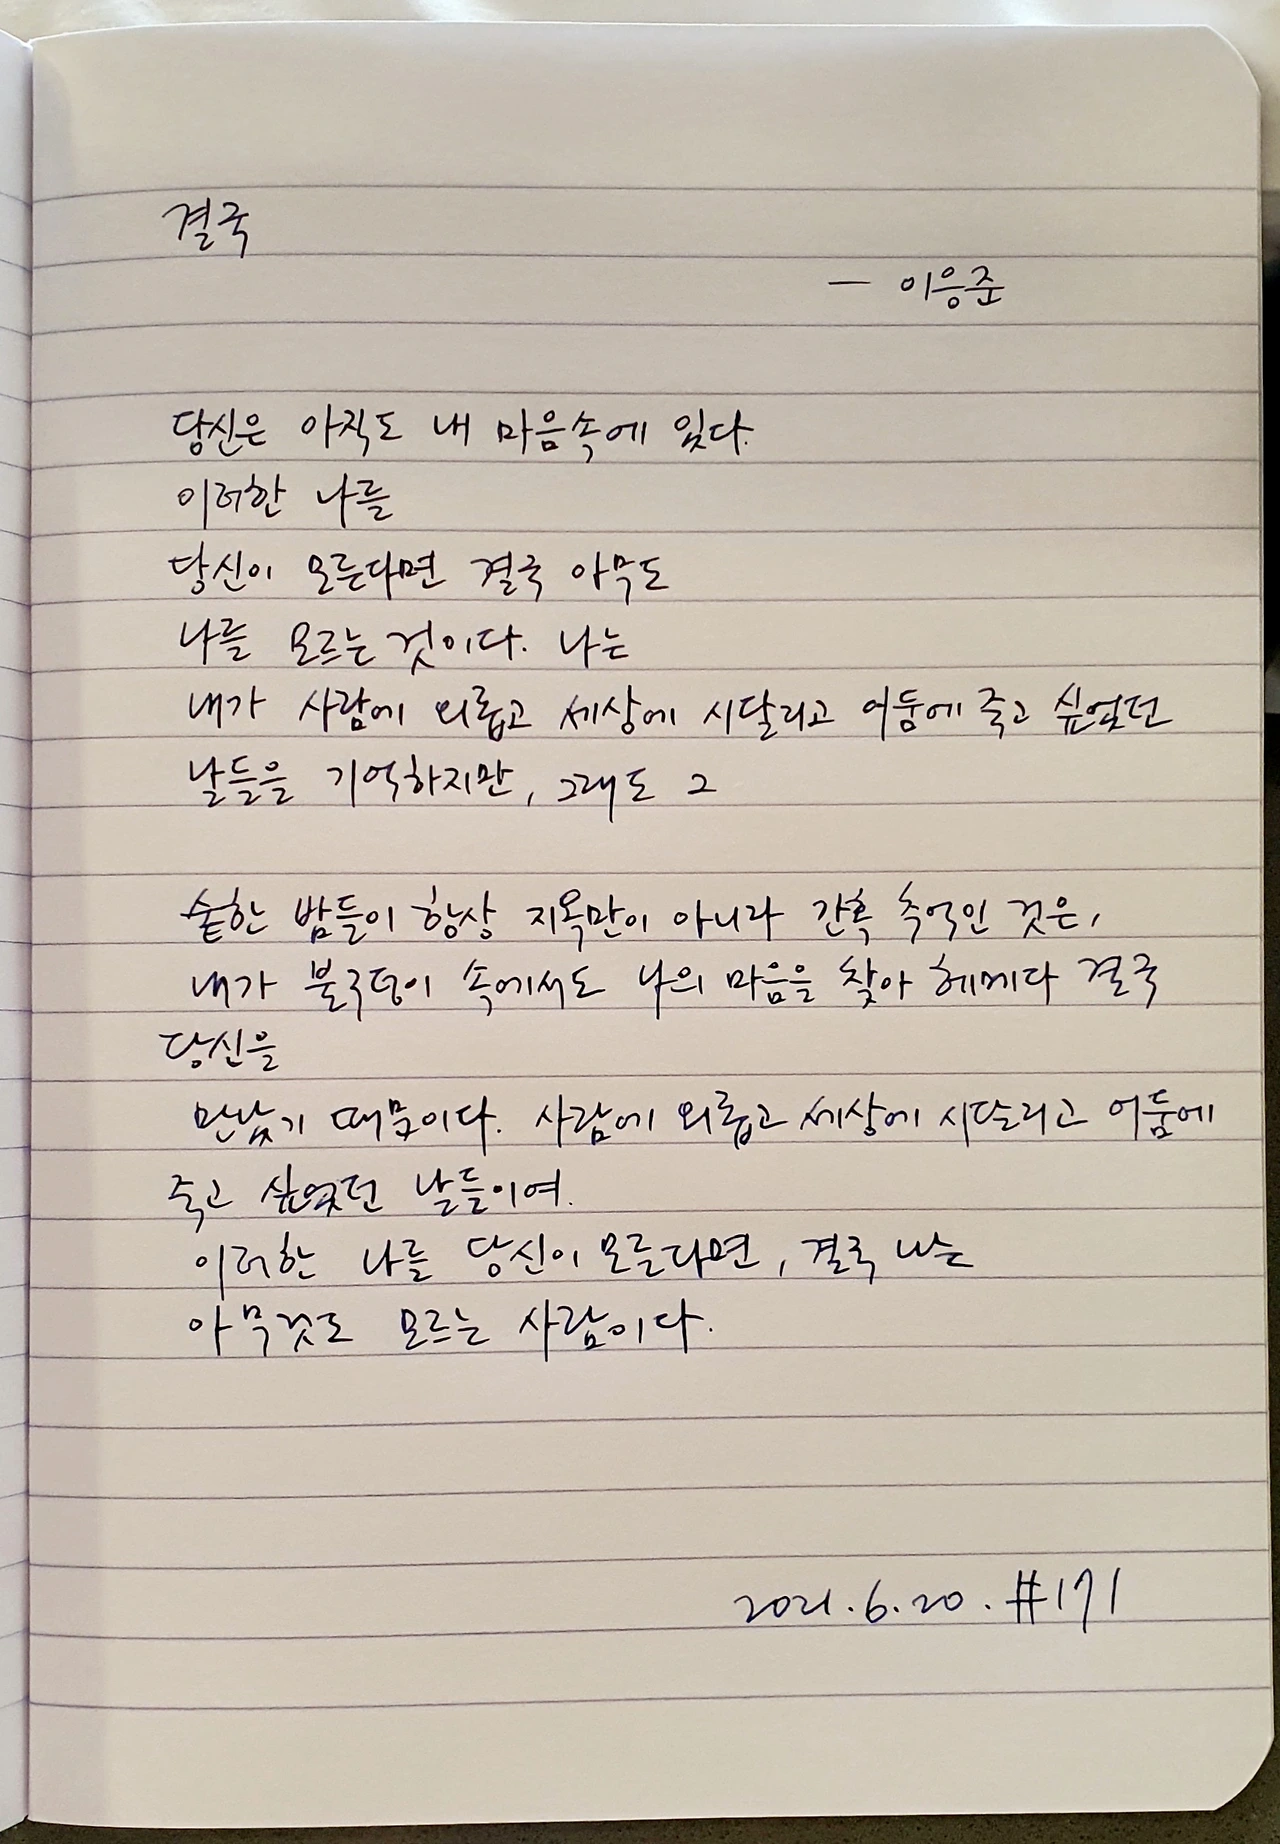 결국
— 이응준
당신은 아직도 내 마음속에 있다.
이러한 나를
당신이 모른다면 결국 아무도
나를 모르는 것이다. 나는
내가 사람에 외롭고 세상에 시달리고 어둠에 죽고 싶었던
날들을 기억하지만, 그래도 그
숱한 밤들이 항상 지옥만이 아니라 간혹 추억인 것은,
내가 불구덩이 속에서도 나의 마음을 찾아 헤메다 결국
당신을
만났기 때문이다. 사람에 외롭고 세상에 시달리고 어둠에
죽고 싶었던 날들이여.
이러한 나를 당신이 모른다면, 결국 나는
아무것도 모르는 사람이다.
2021.6.20. #171